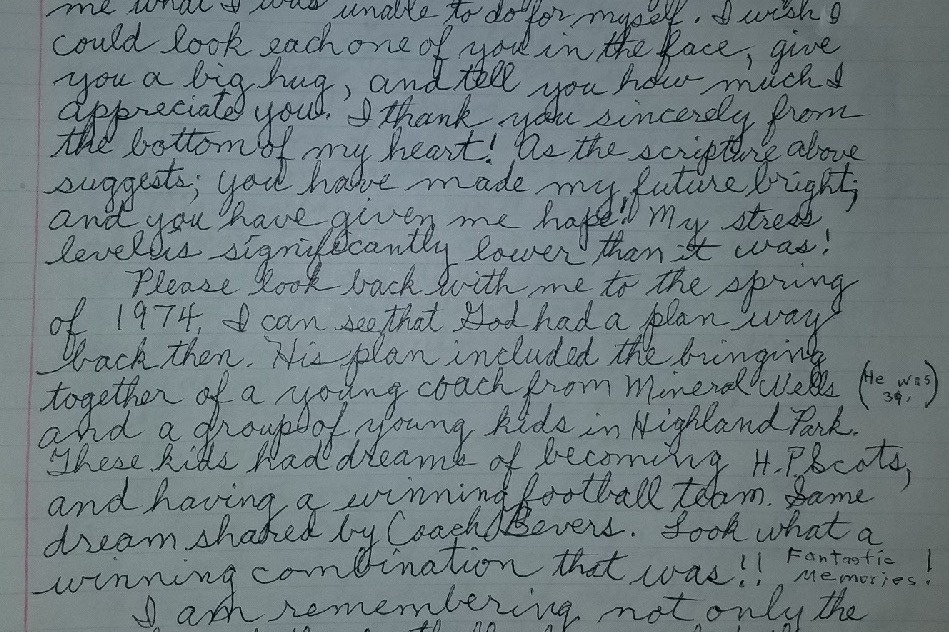 me what I was unable to do for myself. I wish I
could look each one of you in the face, give
you a big hug, and tell you how much I
appreciate you. I thank you sincerely from
the bottom of my heart! As the scripture above
suggests; you have made my future bright;
and you have given me hope! My stress
level is significantly lower than it was!
Please look back with me to the spring
of 1974. I can see that God had a plan way
back then. His plan included the bringing
together of a young coach from Mineral Wells (He was 39.)
and a group of young kids in Highland Park.
These kids had dreams of becoming H.P. Scots,
and having a winning football team. Same
dream shared by Coach Bevers. Look what a
winning combination that was!! Fantastic Memories!
I am remembering not only the